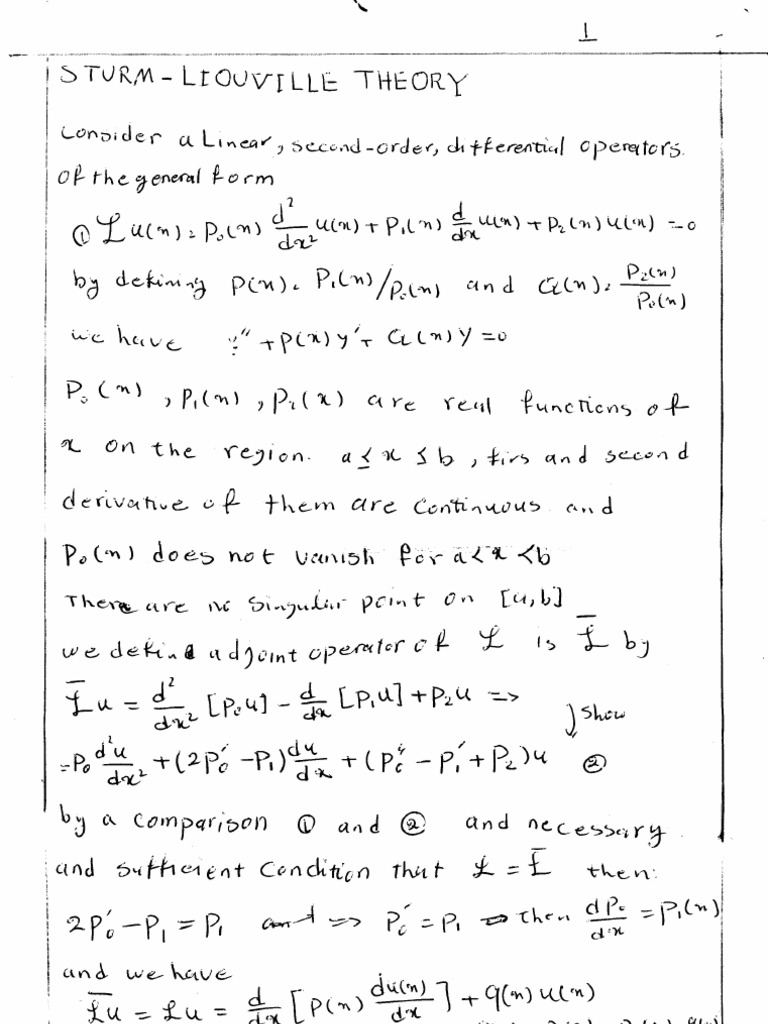 1
STURM-LIOUVILLE THEORY
Consider a Linear, second-order, differential operators.
Of the general form
① ℒu(x) = P₀(x) d²/dx² u(x) + P₁(x) d/dx u(x) + P₂(x) u(x) = 0
by defining P(x) = P₁(x)/P₀(x) and Q(x) = P₂(x)/P₀(x)
we have y″ + P(x) y′ + Q(x) y = 0
P₀(x), P₁(x), P₂(x) are real functions of
x on the region. a ≤ x ≤ b, firs and second
derivative of them are continuous and
P₀(x) does not vanish for a < x < b
There are no singular point on [a,b]
we defind adjoint operator of ℒ is ℒ̄ by
ℒ̄u = d²/dx² [P₀u] - d/dx [P₁u] + P₂u =>
show
= P₀ d²u/dx² + (2P₀′ - P₁) du/dx + (P₀″ - P₁′ + P₂)u ②
by a comparison ① and ② and necessary
and sufficient condition that ℒ = ℒ̄ then:
2P₀′ - P₁ = P₁ => P₀′ = P₁ => then dP₀/dx = P₁(x)
and we have
ℒ̄u = ℒu = d/dx [P(x) du(x)/dx] + q(x) u(x)